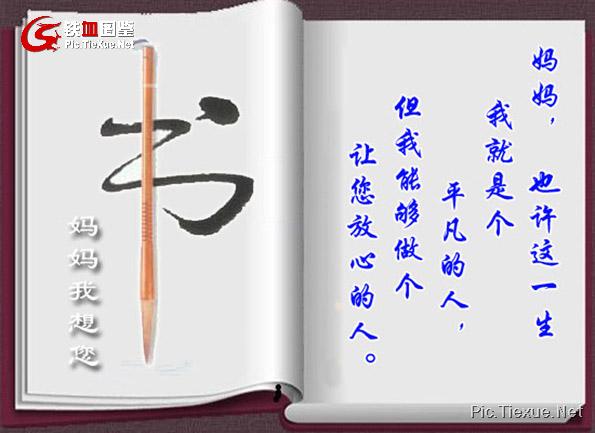 铁血图鉴
Pic.TieXue.Net
书
妈妈我想您
妈妈，也许这一生
我就是个
平凡的人，
但我能够做个
让您放心的人。
Pic.Tiexue.Net